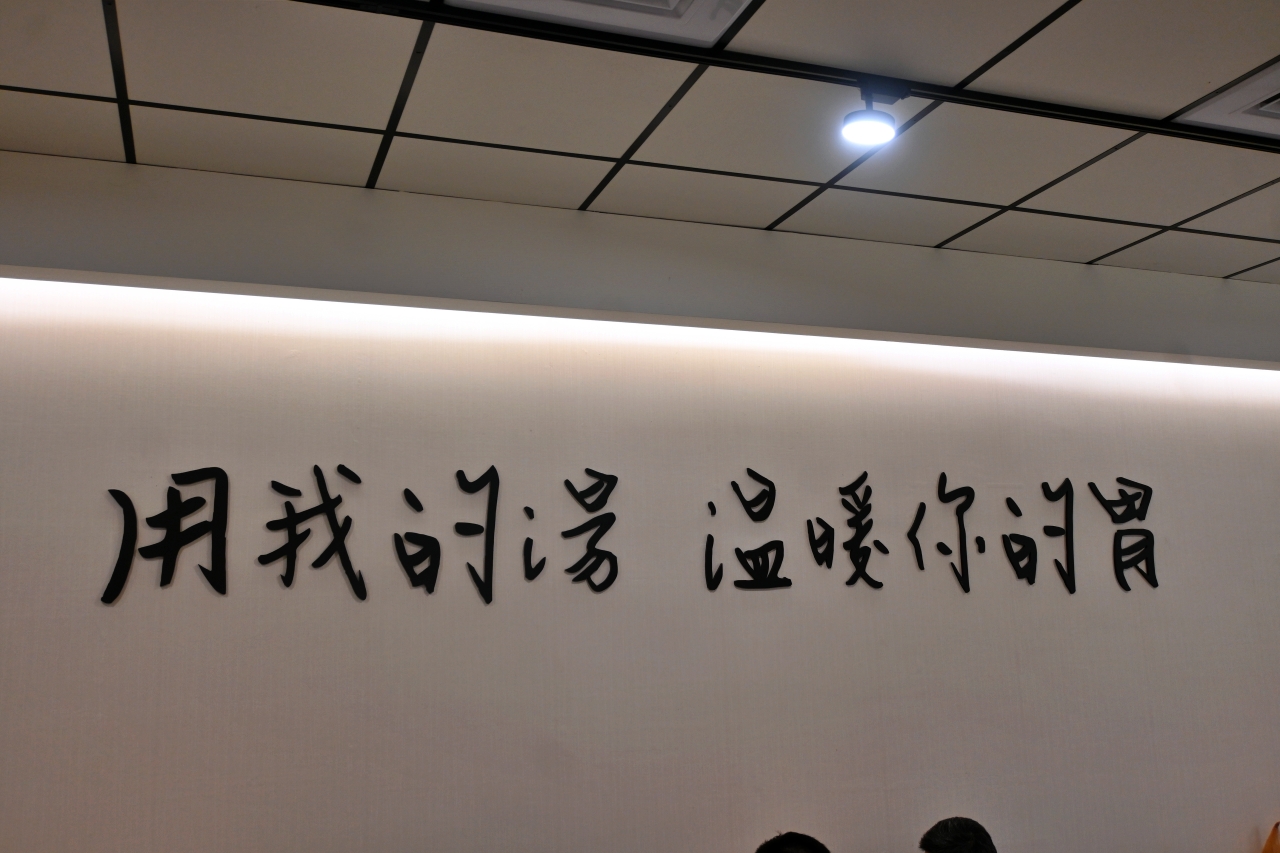 用我的湯 溫暖你的胃